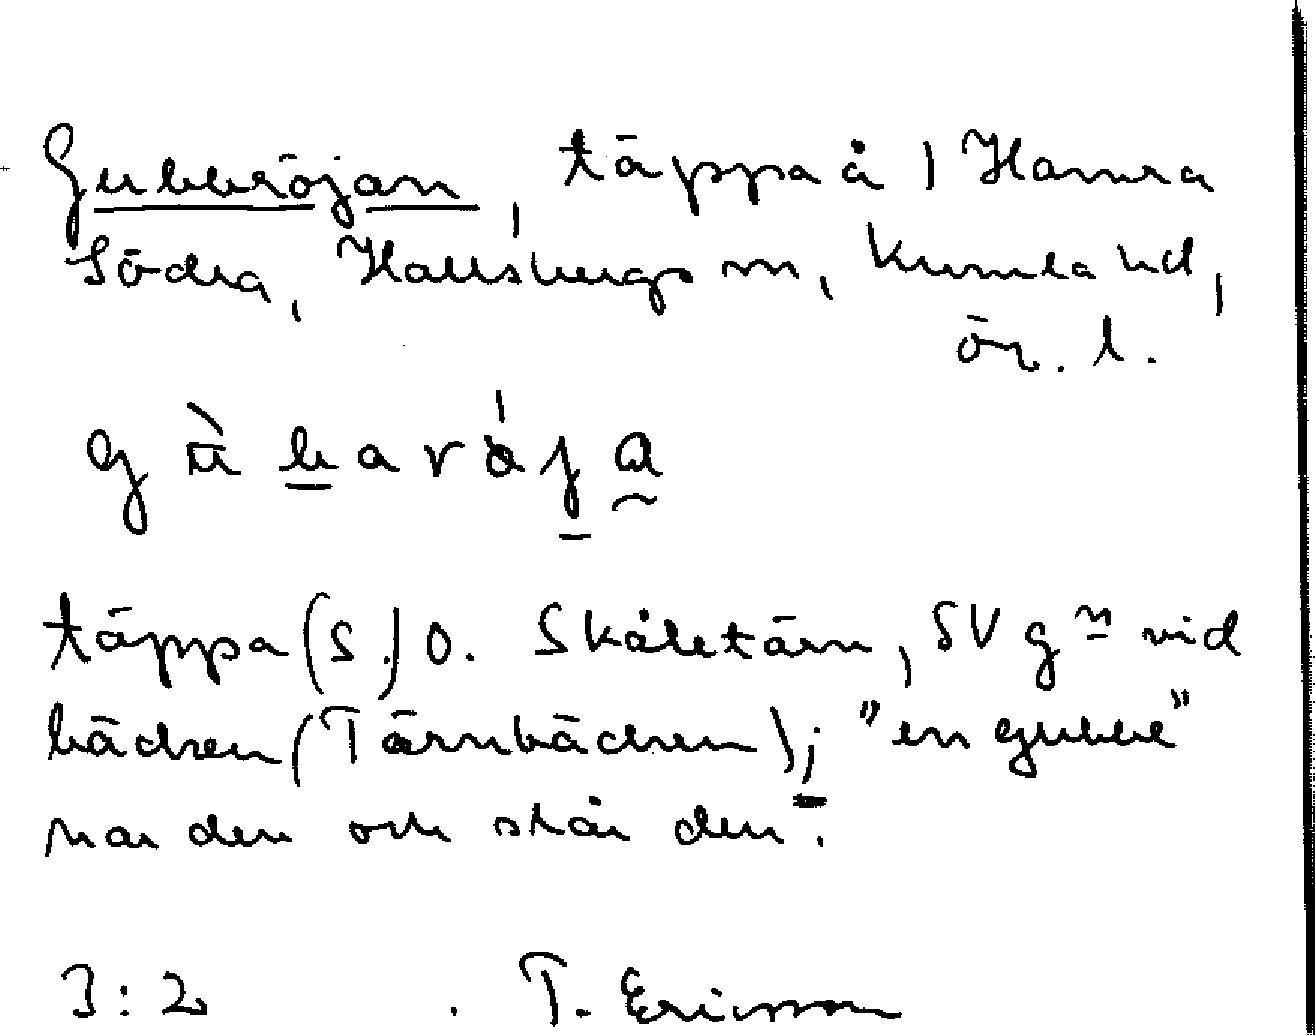 Gubbröjan, täppa å 1 Hamra
Södra, Hallsbergs sn, Kumla hd,
ör. l.
täppa (S.) O. Skåletärn, SV gn vid
bäcken (Tärnbäcken); "en gubbe"
har den och slår den.
3:2 T. Ericsson